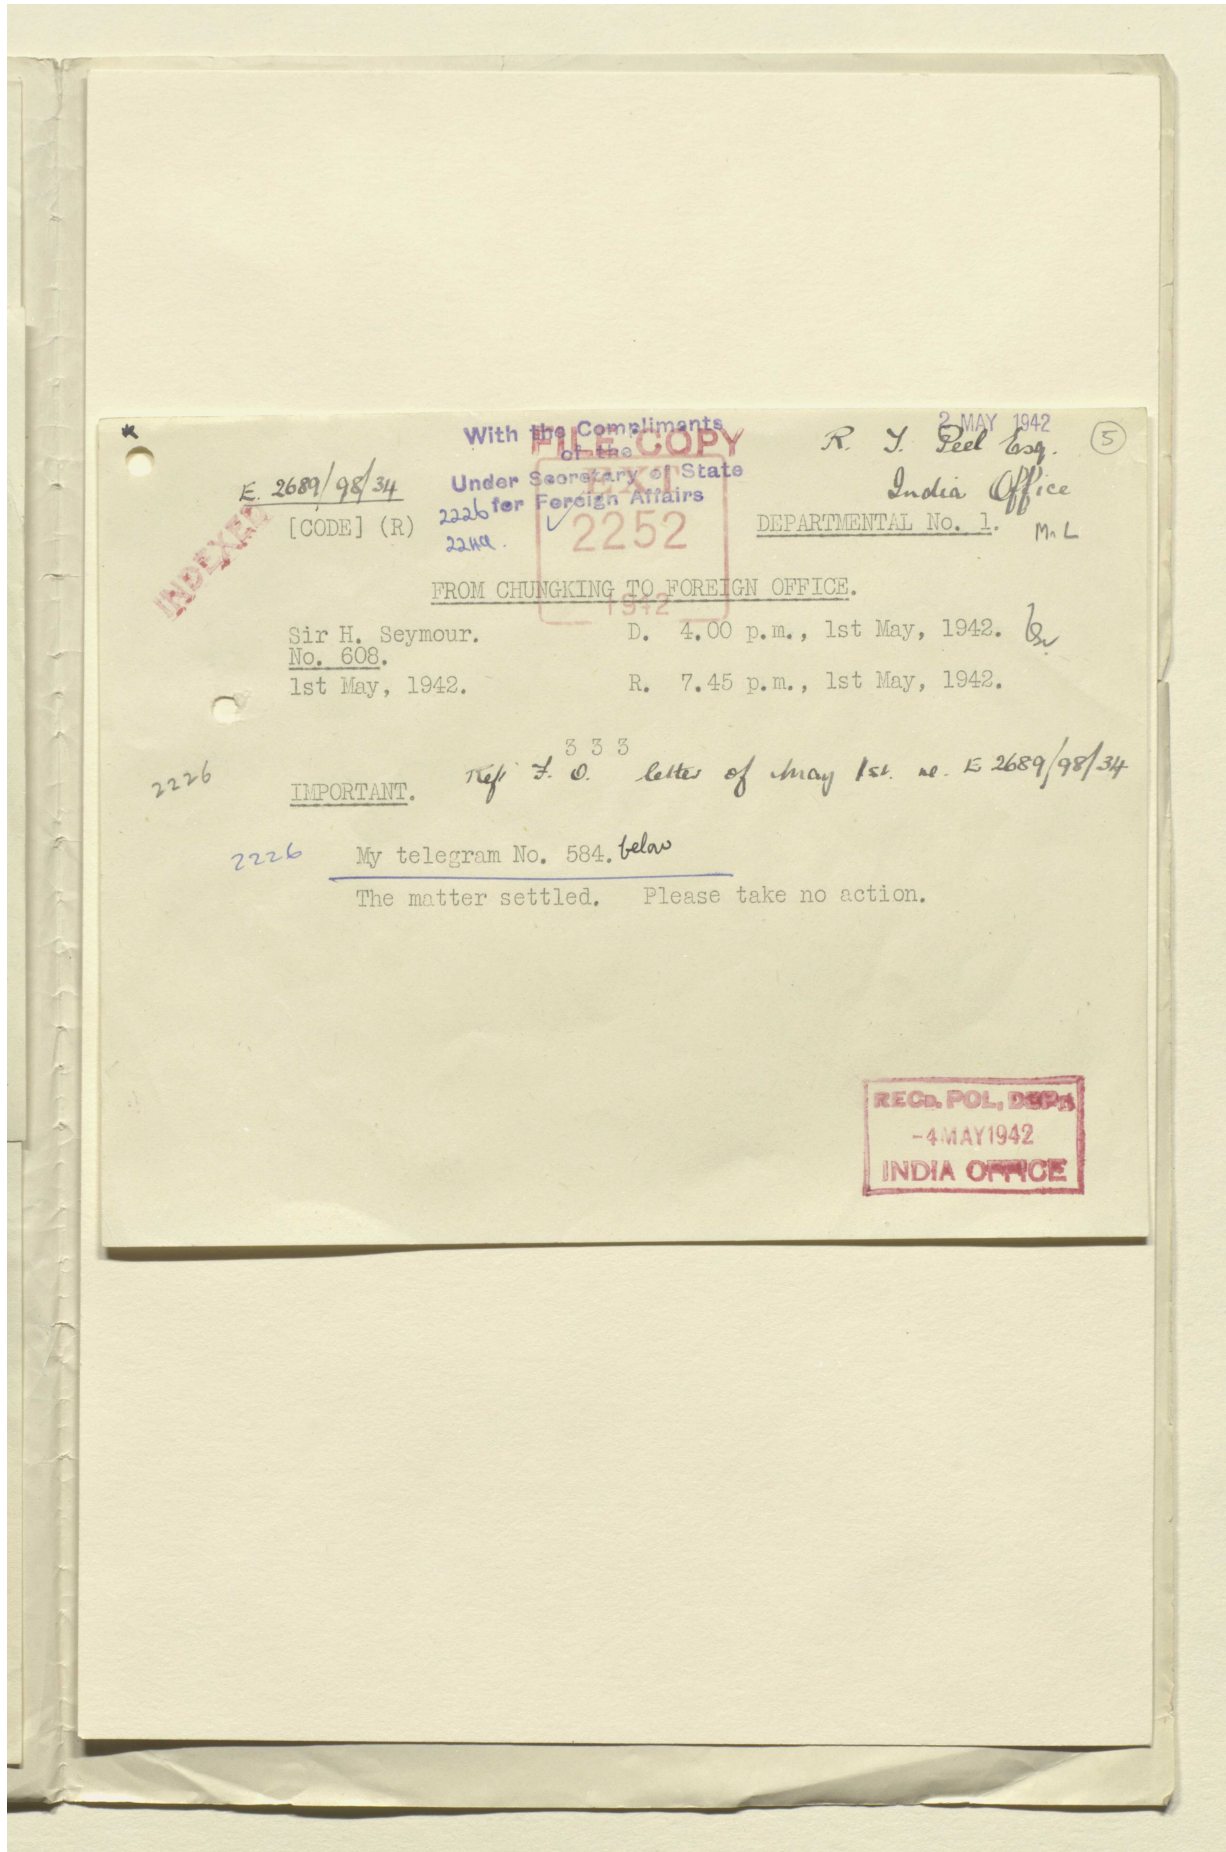 2 MAY 1942
With the Compliments
of the
Under Secretary of State
for Foreign Affairs
FILE COPY
EXT
2252
1942
R. T. Peel Esq.
India Office
5
E. 2689/98/34
INDEXED
[CODE] (R)
2226
DEPARTMENTAL No. 1.
FROM CHUNGKING TO FOREIGN OFFICE.
Sir H. Seymour.
No. 608.
1st May, 1942.
D. 4.00 p.m., 1st May, 1942.
R. 7.45 p.m., 1st May, 1942.
3 3 3
2226
IMPORTANT.
Ref F. O. letter of May 1st. no. E 2689/98/34
2226
My telegram No. 584. below
The matter settled. Please take no action.
RECD. POL. DEPT.
-4 MAY 1942
INDIA OFFICE